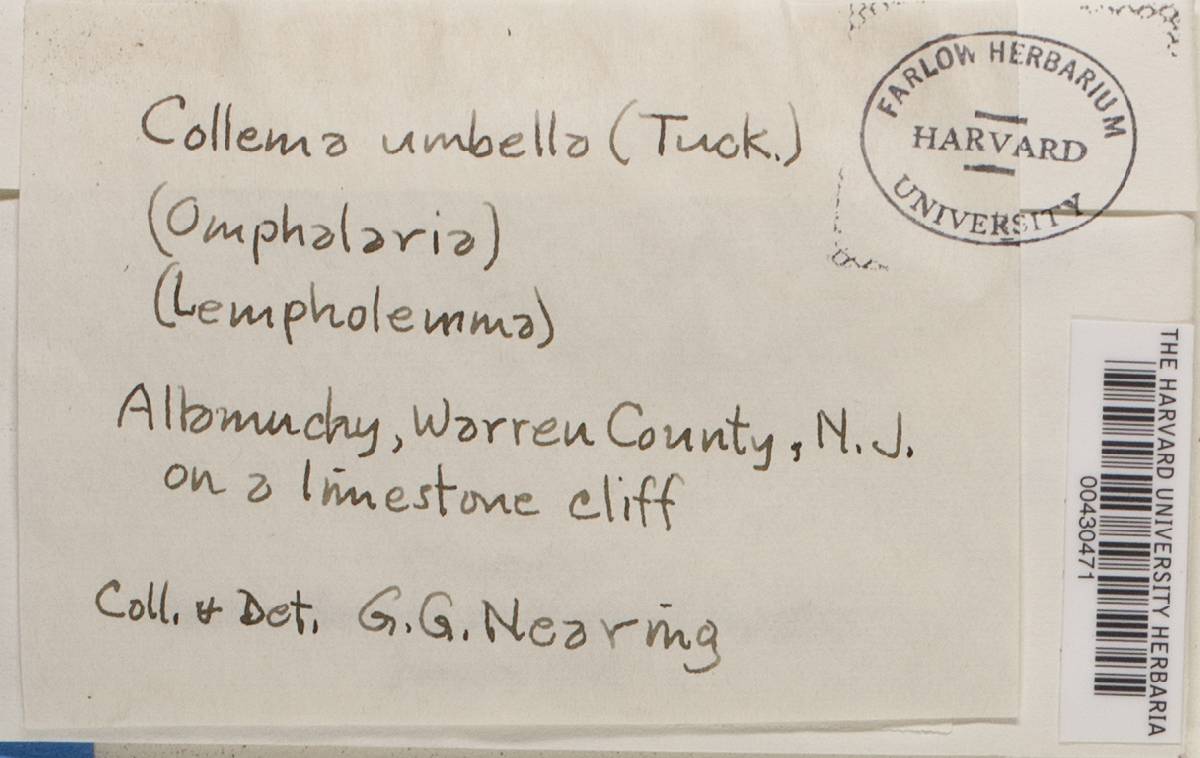 Collema umbella (Tuck.)
(Omphalaria)
(Lempholemma)
Allamuchy, Warren County, N.J.
on a limestone cliff
Coll. & Det. G.G. Nearing
FARLOW HERBARIUM
HARVARD
UNIVERSITY
THE HARVARD UNIVERSITY HERBARIA
00430471